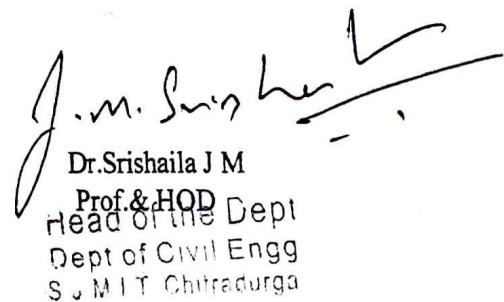 J.M. Srishaila
Dr.Srishaila J M
Prof.&HOD
Head of the Dept
Dept of Civil Engg
S J M I T Chitradurga